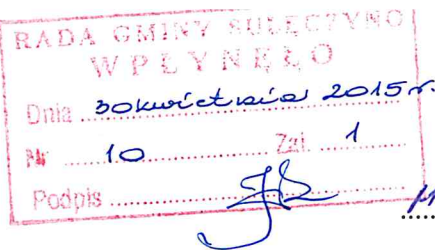 RADA GMINY SULĘCZYNO
WPŁYNĘŁO
Dnia 30 kwietnia 2015 r.
Nr 10 Zał. 1
Podpis